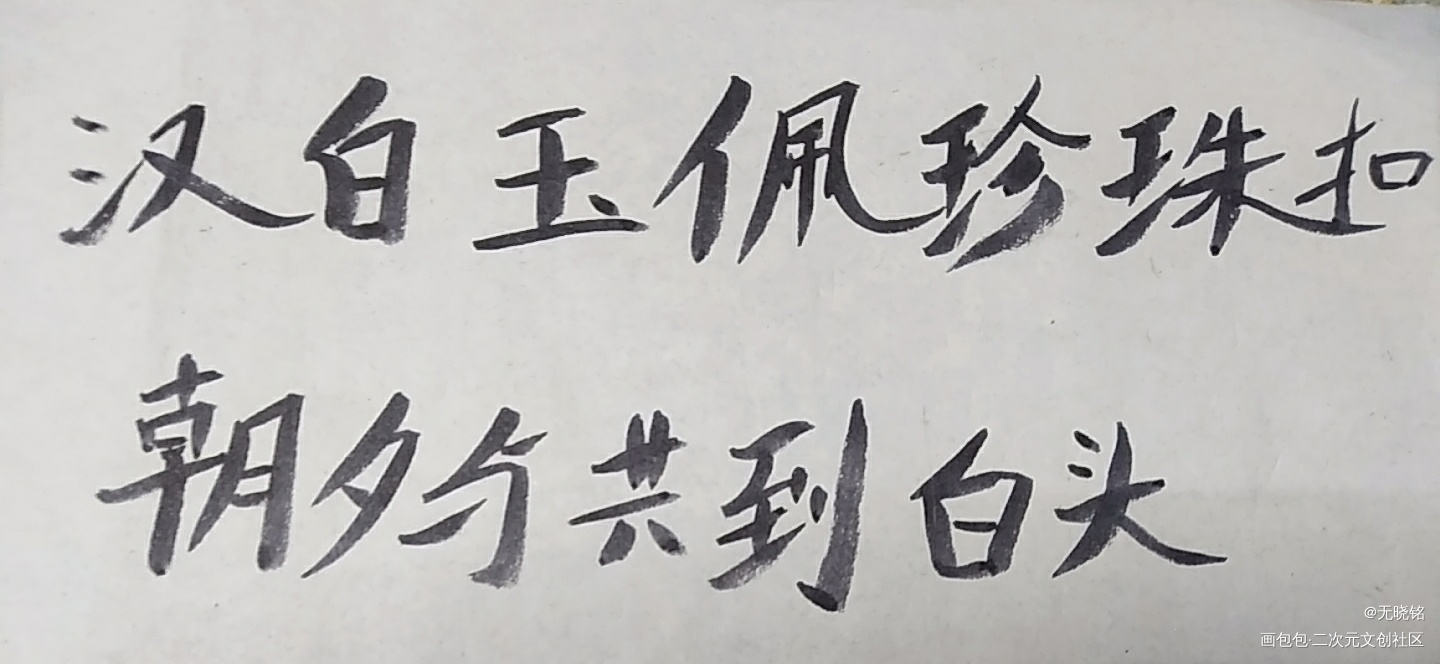 汉白玉佩珍珠扣
朝夕与共到白头
@无晓铭
画包包·二次元文创社区